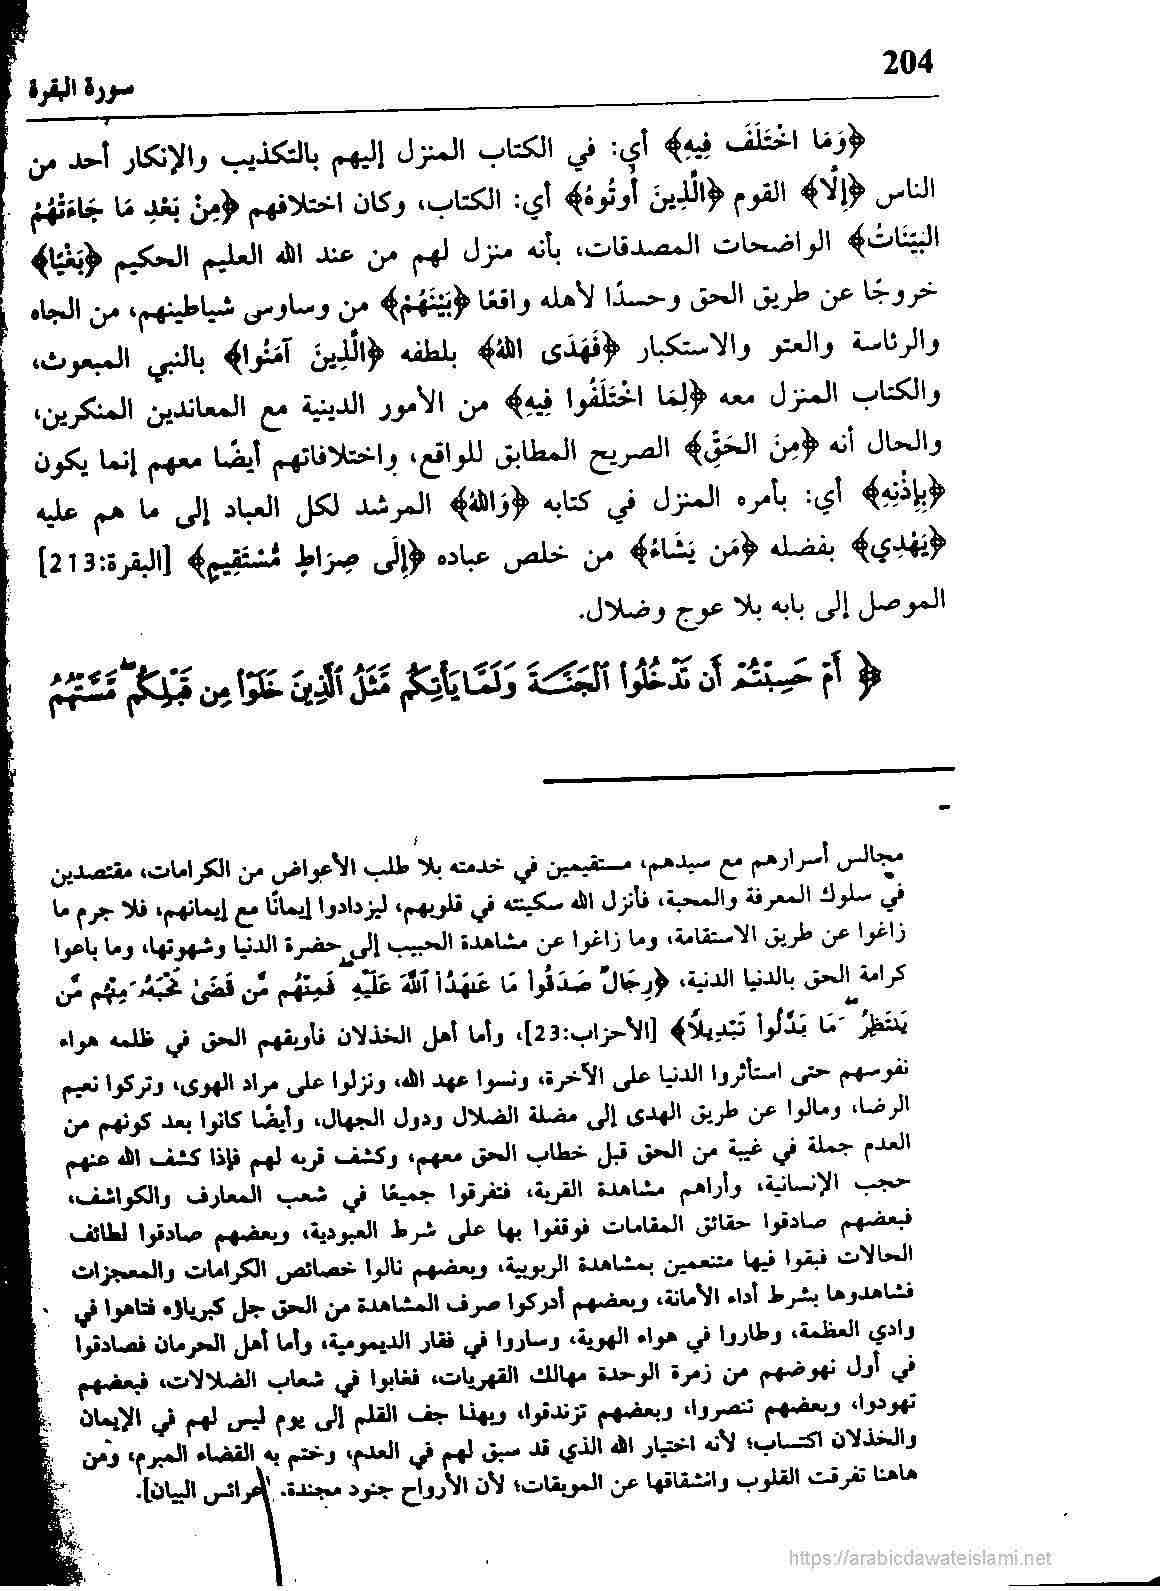 204
سورة البقرة
﴿وَمَا اخْتَلَفَ فِيهِ﴾ أي: في الكتاب المنزل إليهم بالتكذيب والإنكار أحد من
الناس ﴿إِلَّا﴾ القوم ﴿الَّذِينَ أُوتُوهُ﴾ أي: الكتاب، وكان اختلافهم ﴿مِنْ بَعْدِ مَا جَاءَتْهُمُ
البَيِّنَاتُ﴾ الواضحات المصدقات، بأنه منزل لهم من عند الله العليم الحكيم ﴿بَغْيًا﴾
خروجًا عن طريق الحق وحسدًا لأهله واقعًا ﴿بَيْنَهُمْ﴾ من وساوس شياطينهم، من الجاه
والرئاسة والعتو والاستكبار ﴿فَهَدَى اللهُ﴾ بلطفه ﴿الَّذِينَ آمَنُوا﴾ بالنبي المبعوث،
والكتاب المنزل معه ﴿لِمَا اخْتَلَفُوا فِيهِ﴾ من الأمور الدينية مع المعاندين المنكرين،
والحال أنه ﴿مِنَ الحَقِّ﴾ الصريح المطابق للواقع، واختلافاتهم أيضًا معهم إنما يكون
﴿بِإِذْنِهِ﴾ أي: بأمره المنزل في كتابه ﴿وَاللهُ﴾ المرشد لكل العباد إلى ما هم عليه
﴿يَهْدِي﴾ بفضله ﴿مَن يَشَاءُ﴾ من خلص عباده ﴿إِلَى صِرَاطٍ مُسْتَقِيمٍ﴾ [البقرة:213]
الموصل إلى بابه بلا عوج وضلال.
﴿ أَمْ حَسِبْتُمْ أَن تَدْخُلُوا۟ ٱلْجَنَّةَ وَلَمَّا يَأْتِكُم مَّثَلُ ٱلَّذِينَ خَلَوْا۟ مِن قَبْلِكُم ۖ مَّسَّتْهُمُ
مجالس أسرارهم مع سيدهم، مستقيمين في خدمته بلا طلب الأعواض من الكرامات، مقتصدين
في سلوك المعرفة والمحبة، فأنزل الله سكينته في قلوبهم، ليزدادوا إيمانًا مع إيمانهم، فلا جرم ما
زاغوا عن طريق الاستقامة، وما زاغوا عن مشاهدة الحبيب إلى حضرة الدنيا وشهوتها، وما باعوا
كرامة الحق بالدنيا الدنية، ﴿رِجَالٌ صَدَقُوا۟ مَا عَـٰهَدُوا۟ ٱللَّهَ عَلَيْهِ ۖ فَمِنْهُم مَّن قَضَىٰ نَحْبَهُۥ وَمِنْهُم مَّن
يَنتَظِرُ ۖ وَمَا بَدَّلُوا۟ تَبْدِيلًا﴾ [الأحزاب:23]، وأما أهل الخذلان فأوبقهم الحق في ظلمه هواء
نفوسهم حتى استأثروا الدنيا على الآخرة، ونسوا عهد الله، ونزلوا على مراد الهوى، وتركوا نعيم
الرضا، ومالوا عن طريق الهدى إلى مضلة الضلال ودول الجهال، وأيضًا كانوا بعد كونهم من
العدم جملة في غيبة من الحق قبل خطاب الحق معهم، وكشف قربه لهم فإذا كشف الله عنهم
حجب الإنسانية، وأراهم مشاهدة القربة، فتفرقوا جميعًا في شعب المعارف والكواشف،
فبعضهم صادقوا حقائق المقامات فوقفوا بها على شرط العبودية، وبعضهم صادقوا لطائف
الحالات فبقوا فيها متنعمين بمشاهدة الربوبية، وبعضهم نالوا خصائص الكرامات والمعجزات
فشاهدوها بشرط أداء الأمانة، وبعضهم أدركوا صرف المشاهدة من الحق جل كبرياؤه فتاهوا في
وادي العظمة، وطاروا في هواء الهوية، وساروا في فقار الديمومية، وأما أهل الحرمان فصادقوا
في أول نهوضهم من زمرة الوحدة مهالك القهريات، فغابوا في شعاب الضلالات، فبعضهم
تهودوا، وبعضهم تنصروا، وبعضهم تزندقوا، وبهذا جف القلم إلى يوم ليس لهم في الإيمان
والخذلان اكتساب؛ لأنه اختيار الله الذي قد سبق لهم في العدم، وختم به القضاء المبرم، ومن
هاهنا تفرقت القلوب وانشقاقها عن الموبقات؛ لأن الأرواح جنود مجندة. [عرائس البيان].
https://arabicdawateislami.net